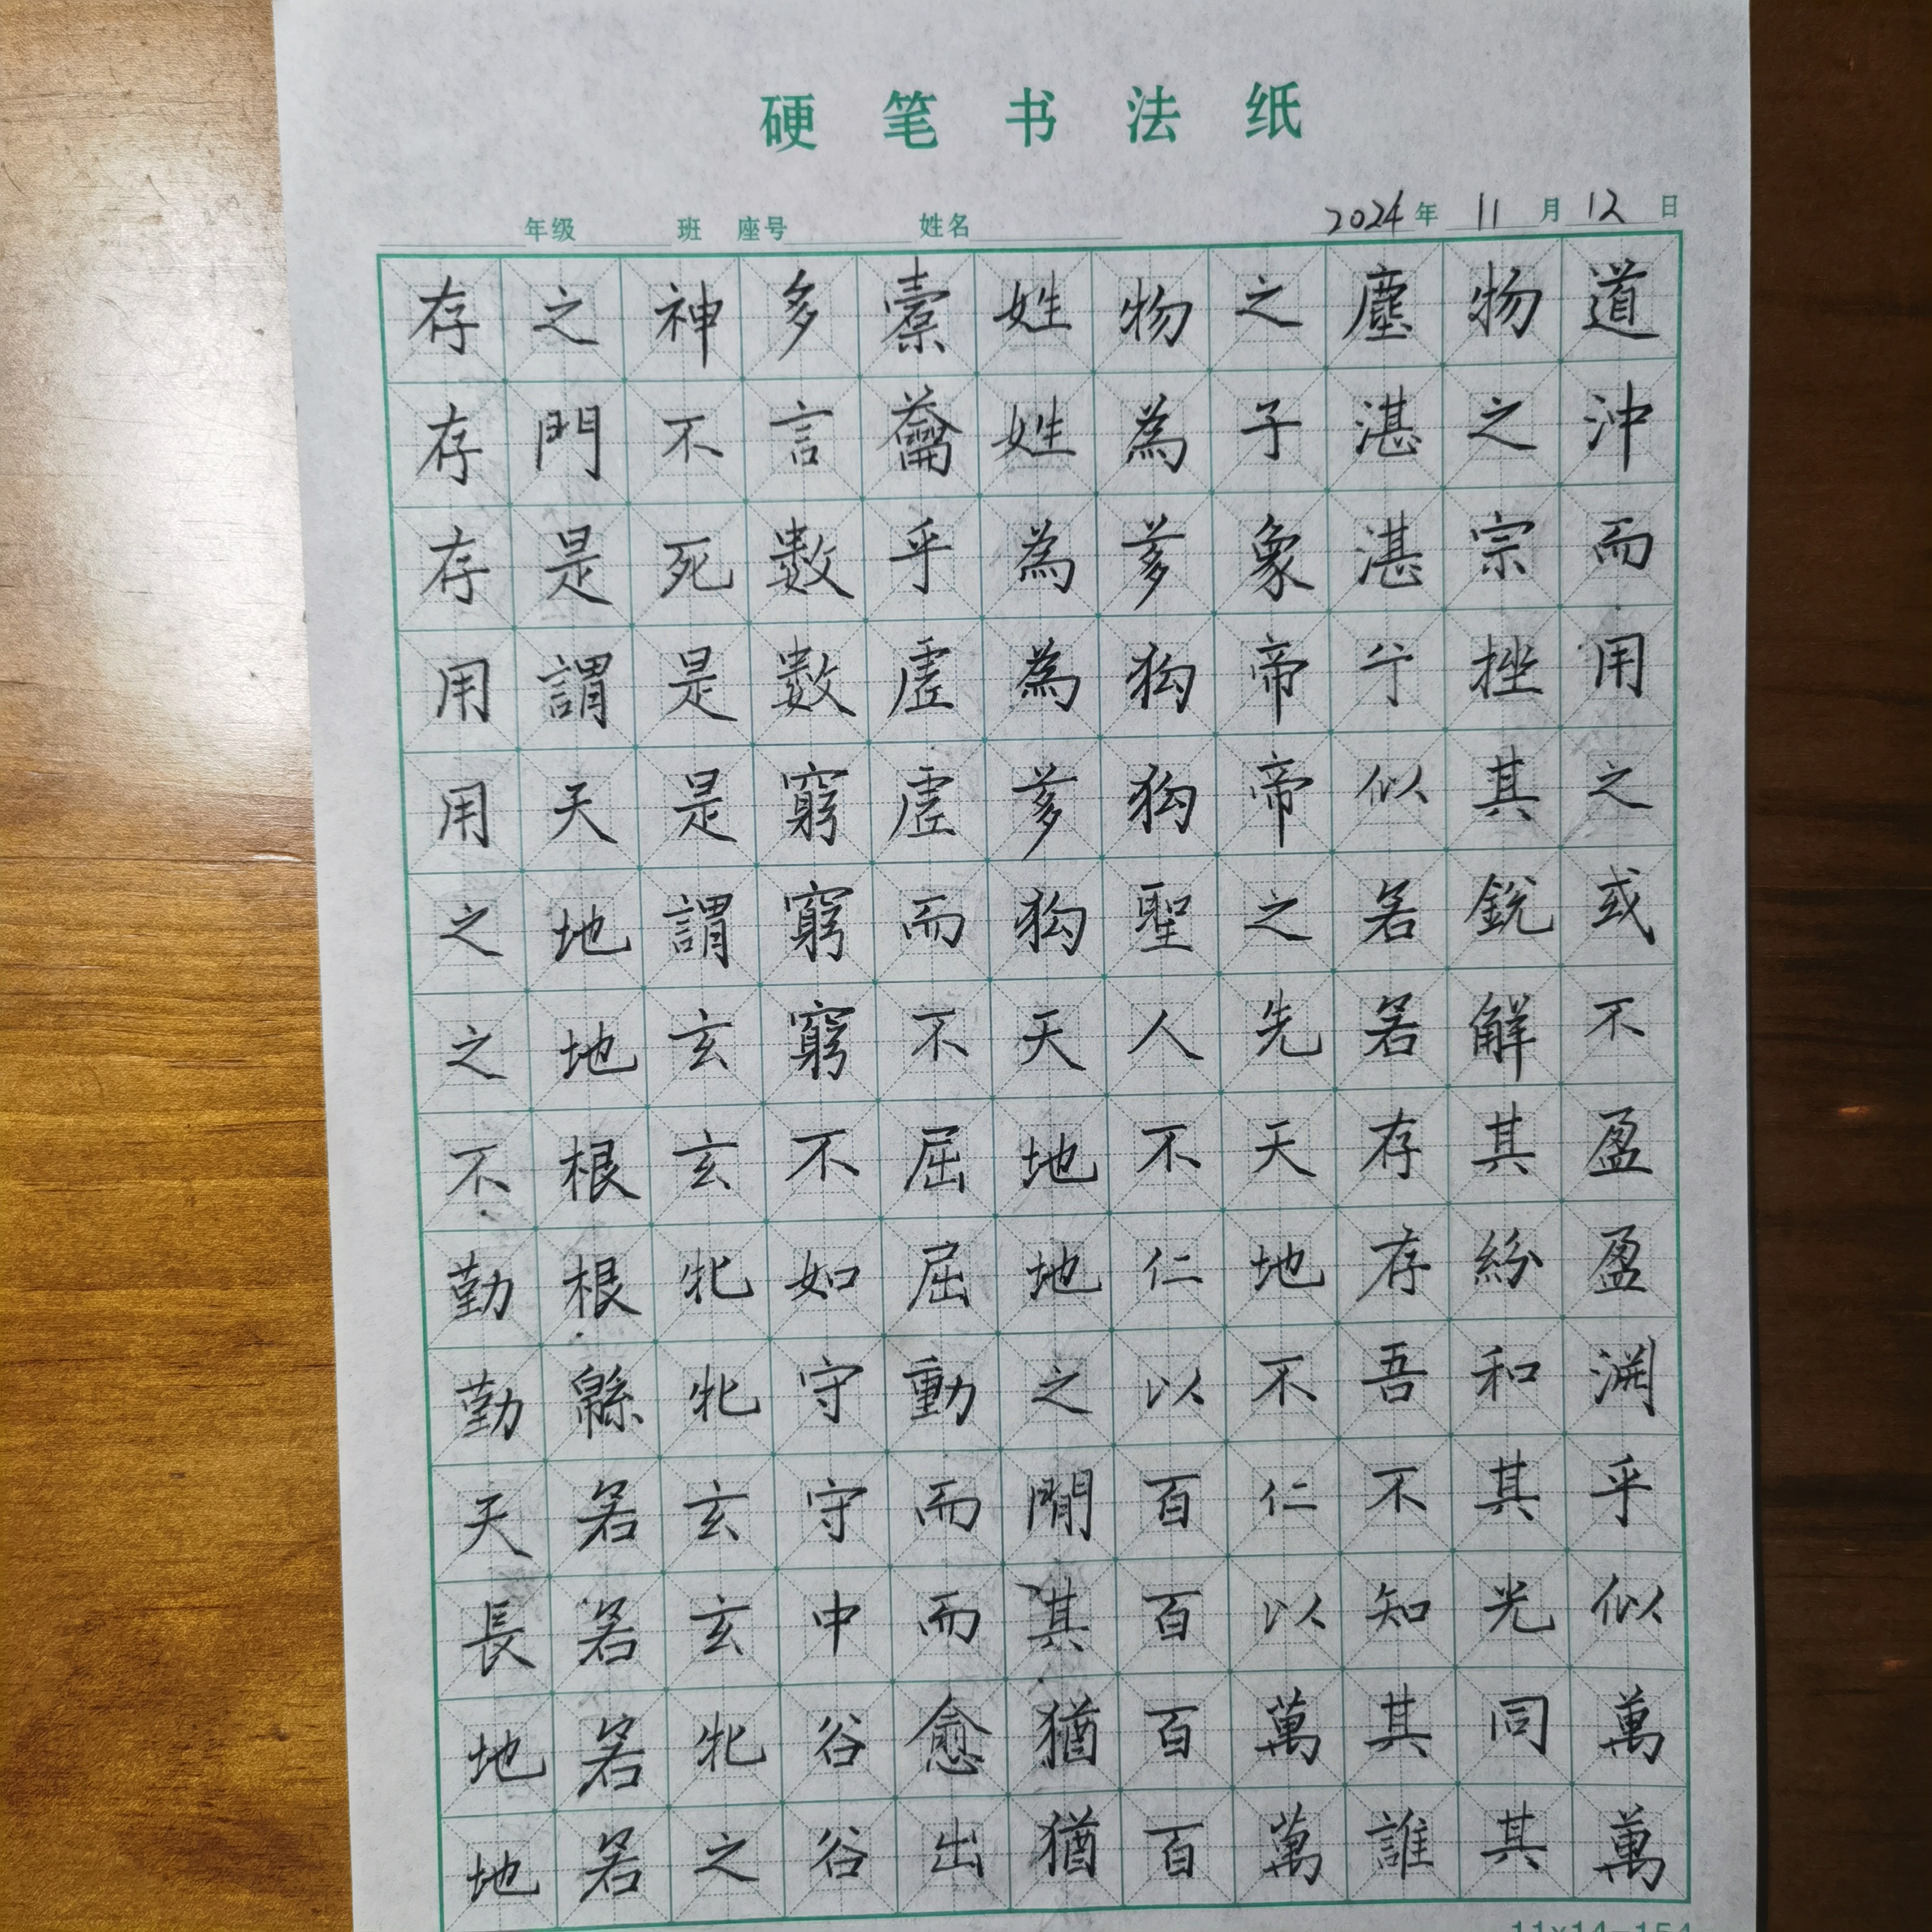 硬笔书法纸
年级 班 座号 姓名 2024年11月12日
道沖而用之或不盈盈淵乎似萬萬
物之宗挫其銳解其紛和其光同其
塵湛湛兮似若若存存吾不知其誰
之子象帝帝之先天地不仁以萬萬
物為芻狗狗聖人不仁以百百百百
姓姓為為芻狗天地地之間其猶猶
橐籥乎虛虛而不屈屈動而而愈出
多言數數窮窮窮不如守守中谷谷
神不死是是謂玄玄牝牝玄玄牝之
之門是謂天地地根根緜若若若若
存存存用用之之不勤勤天長地地
11×14=154